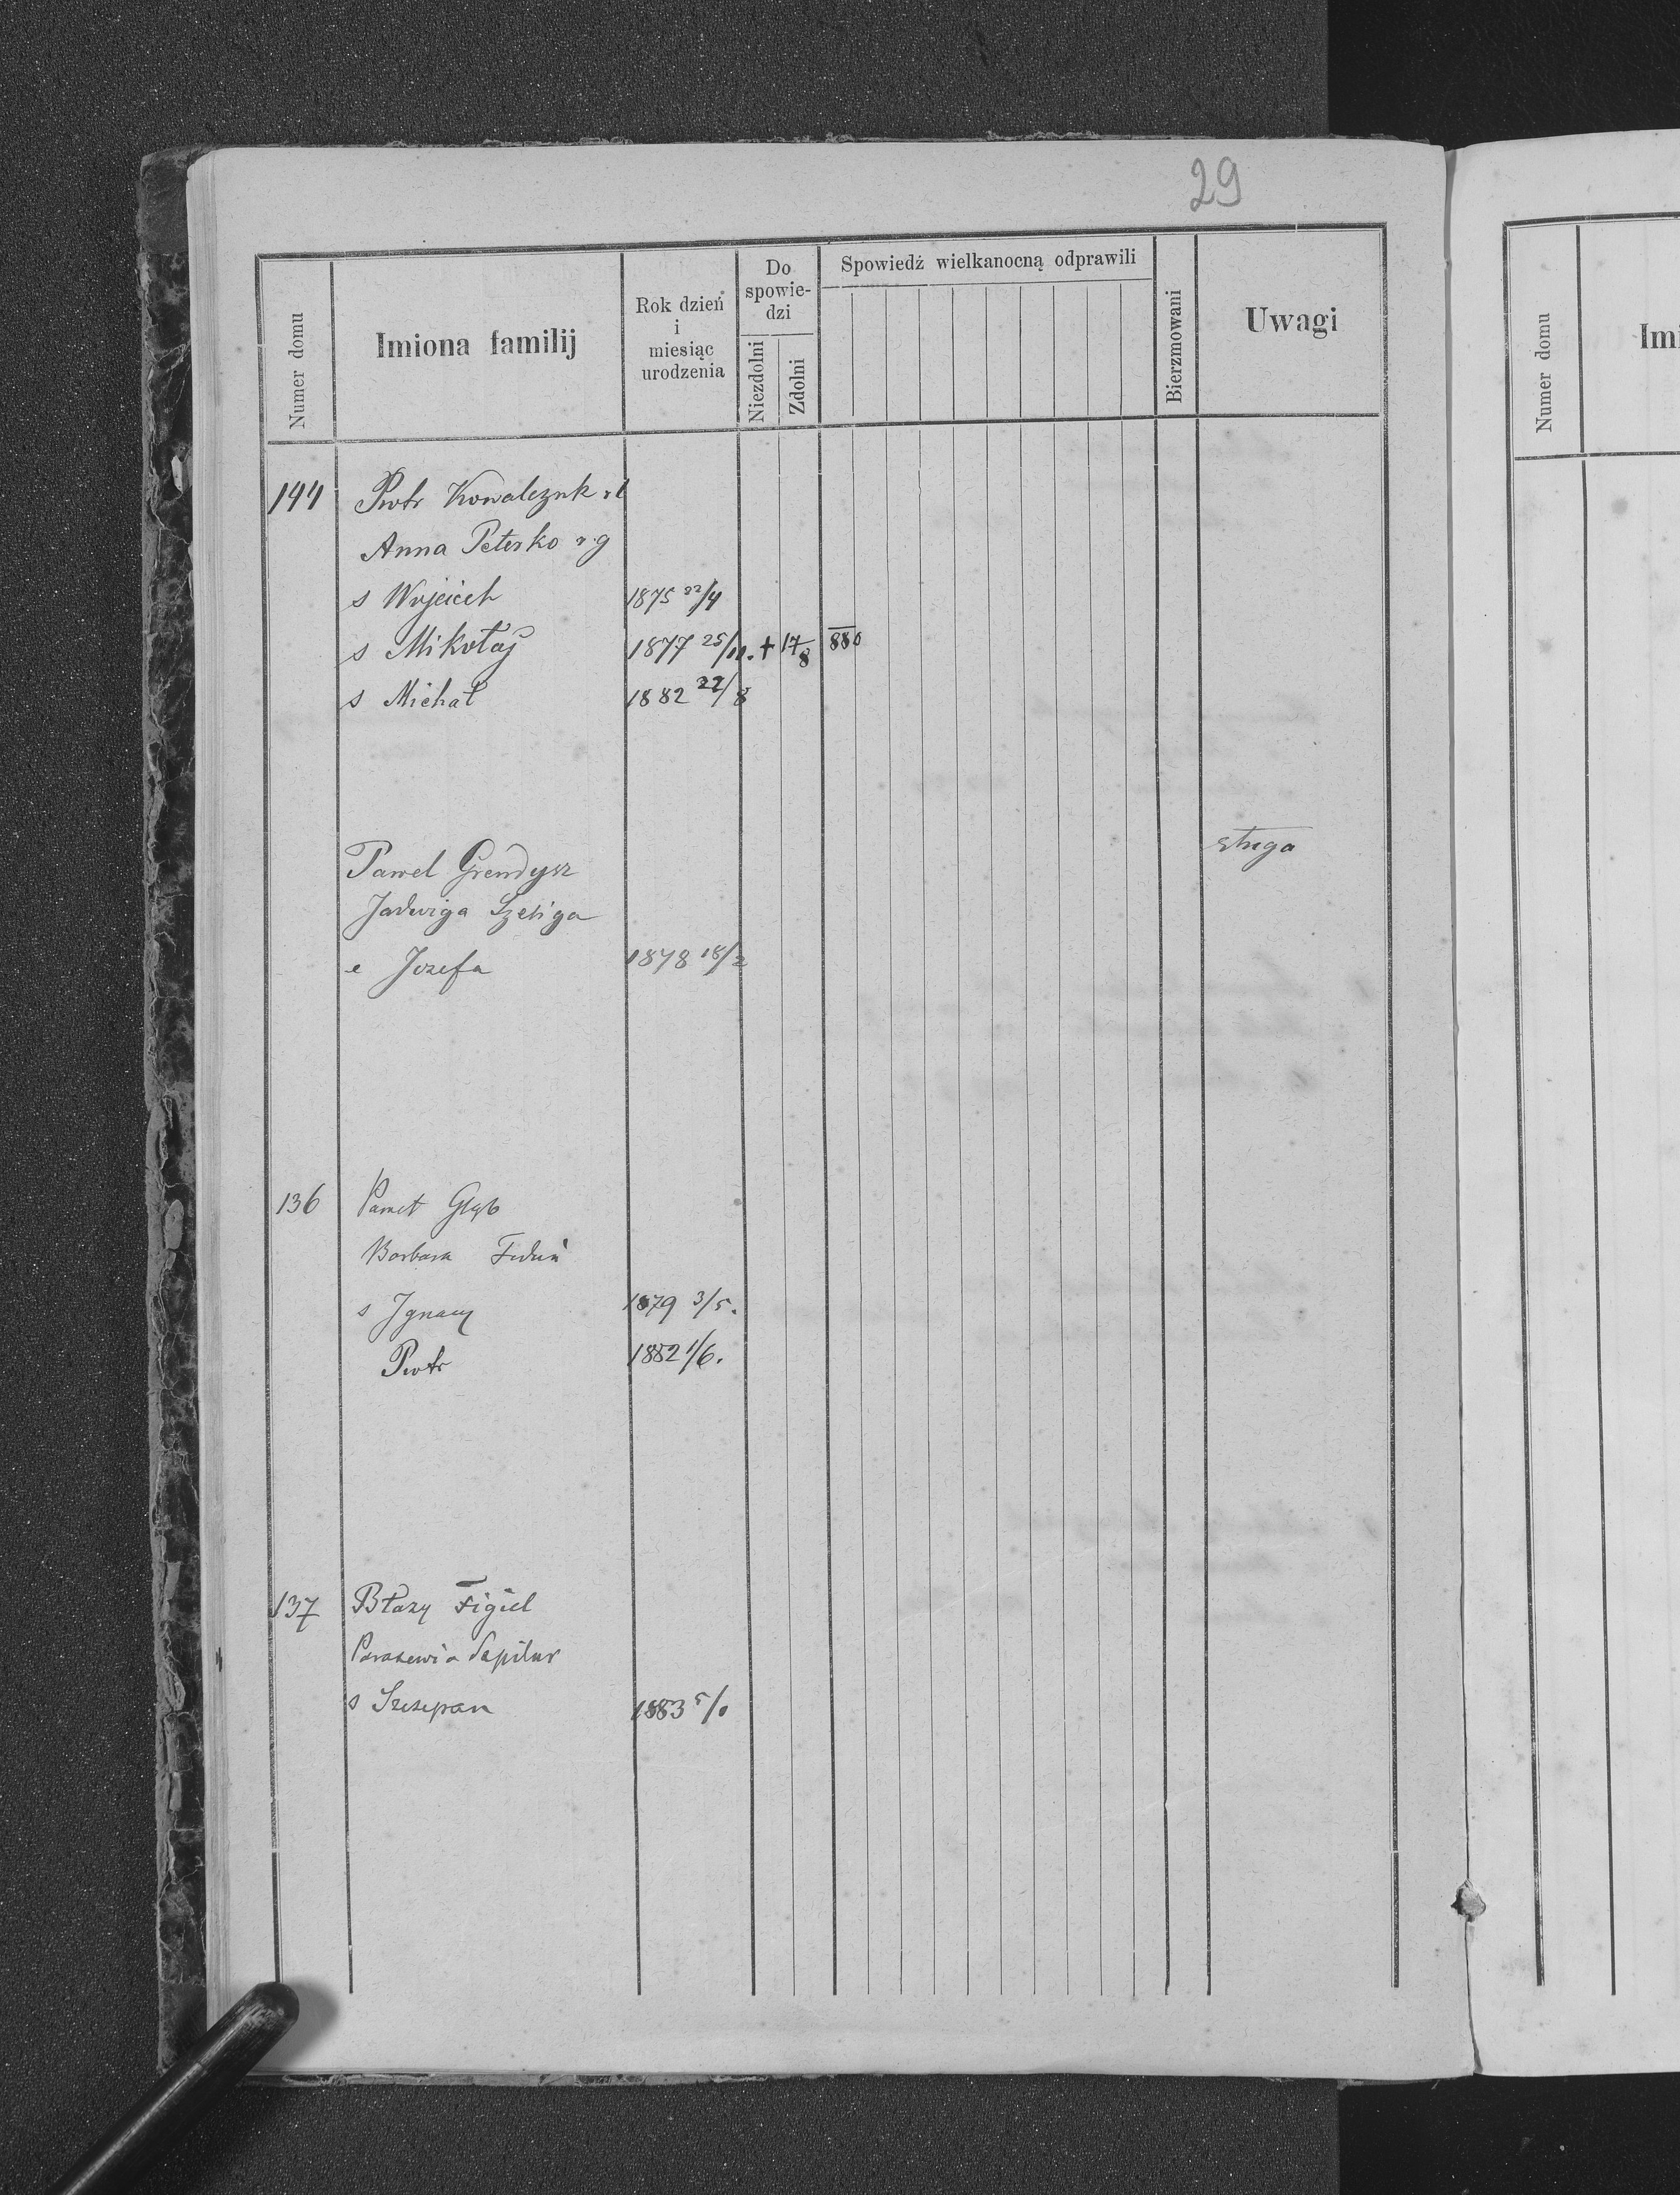 29
Numer domu
Imiona familij
Rok dzień
i
miesiąc
urodzenia
Do
spowie-
dzi
Niezdolni
Zdolni
Spowiedź wielkanocną odprawili
Bierzmowani
Uwagi
144 Piotr Kowalczuk
Anna Petesko r. g
s Wojciech 1875 22/4
s Mikołaj 1877 25/11. + 17/8 880
s Michał 1882 22/8
Pawel Grendysz sługa
Jadwiga Szeliga
c Jozefa 1878 18/2
136 Paweł Głąb
Barbara
s Ignacy 1879 3/5.
Piotr 1882 1/6.
137 Błazy Figiel
s Szczepan 1883
Numer domu
Imi